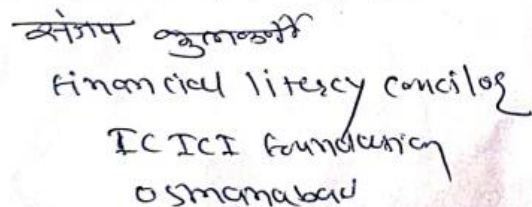 संजय कुलकर्णी
Financial litercy Concilor
ICICI Foundation
Osmanabad